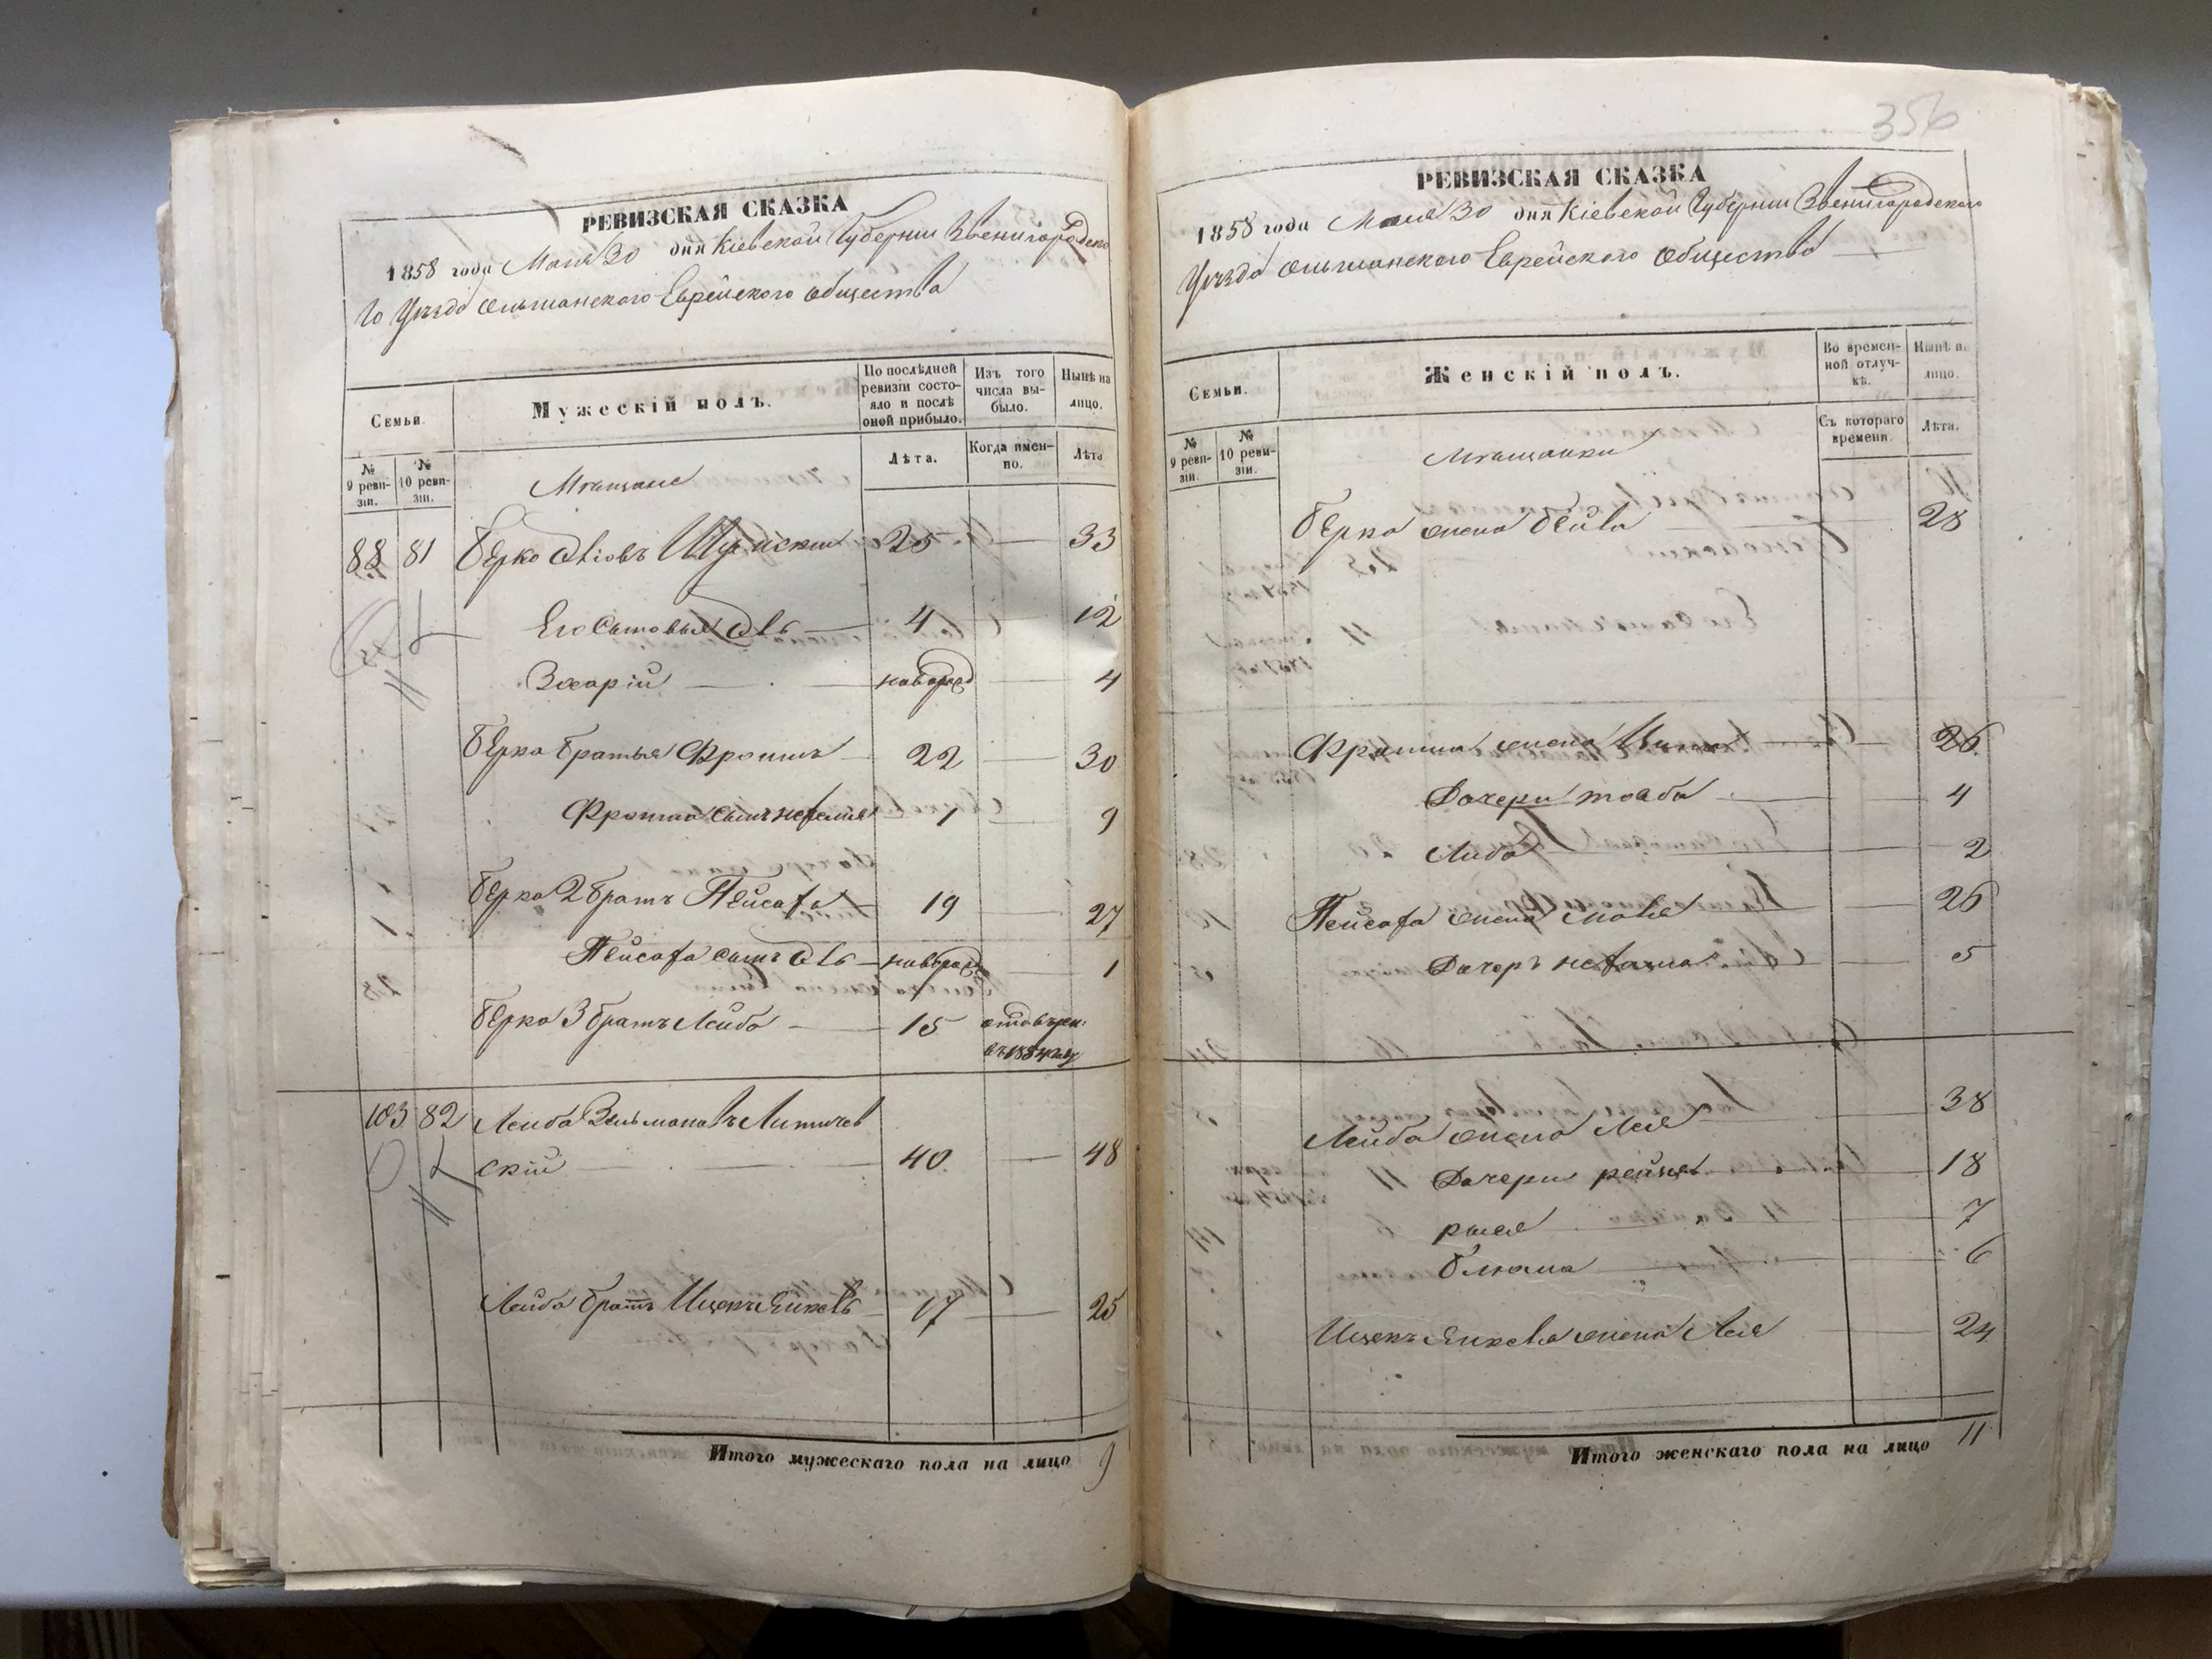 РЕВИЗСКАЯ СКАЗКА
1858 года Мая 30 дня Кіевской Губерніи Звенигородска
го Уѣзда Ольшанского Еврейского Общества
Семьи.
Мужескій полъ.
По послѣдней ревизіи состояло и послѣ оной прибыло.
Изъ того числа выбыло.
Нынѣ на лицо.
№ 9 ревизіи.
№ 10 ревизіи.
Лѣта.
Когда именно.
Лѣта
Мѣщане
88 81 Берко Овіовъ 25 — 33
Его Сыновья Овъ — 4 — 12
Захарій — новорожд — 4
Берка братья Фроимъ — 22 — 30
Фроима сынъ 1 — 9
Берка 2 братъ Пейсаха — 19 — 27
Пейсаха сынъ Овъ — новорожд 1
Берка 3 братъ Лейба — 15
103 82 Лейба Зельмановъ Литичев
скій — 40 — 48
Лейба братъ Ицекъ Янкель 17 — 25
Итого мужескаго пола на лицо 9
356
РЕВИЗСКАЯ СКАЗКА
1858 года Мая 30 дня Кіевской Губерніи Звенигородского
Уѣзда Ольшанского Еврейского Общества
Семьи.
Женскій полъ.
Во временной отлучкѣ.
Нынѣ на лицо.
№ 9 ревизіи.
№ 10 ревизіи.
Съ котораго времени.
Лѣта.
Мѣщанки
Берка жена Бейла 28
Фроима жена — 26
Дочери тоаба — 4
Либа — 2
Пейсаха жена — 26
Дочерь нехама — 5
Лейба жена Лея 38
Дочери — 18
рыся — 7
блюма — 6
Ицекъ Янкеля жена Лея — 24
Итого женскаго пола на лицо 11